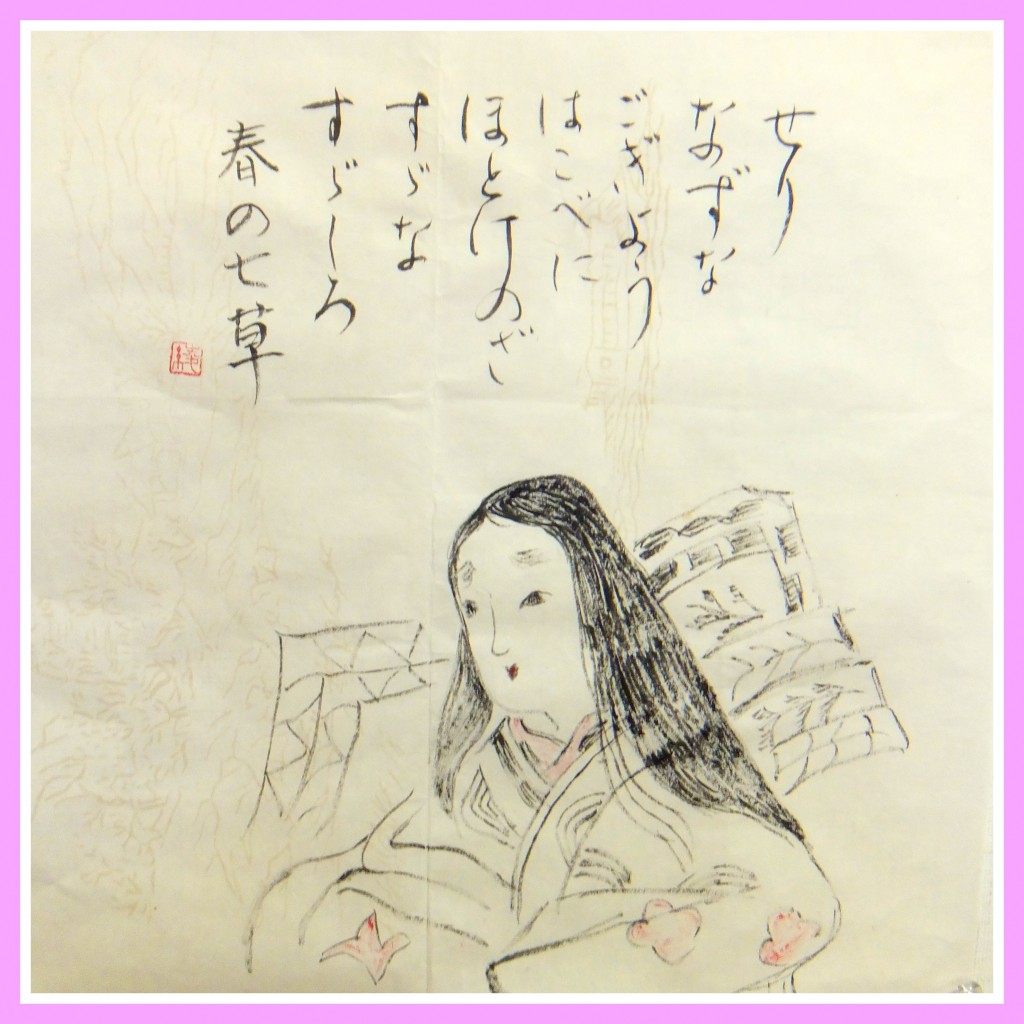 せり
なずな
ごぎよう
はこべに
ほとけのざ
すゞな
すゞしろ
春の七草